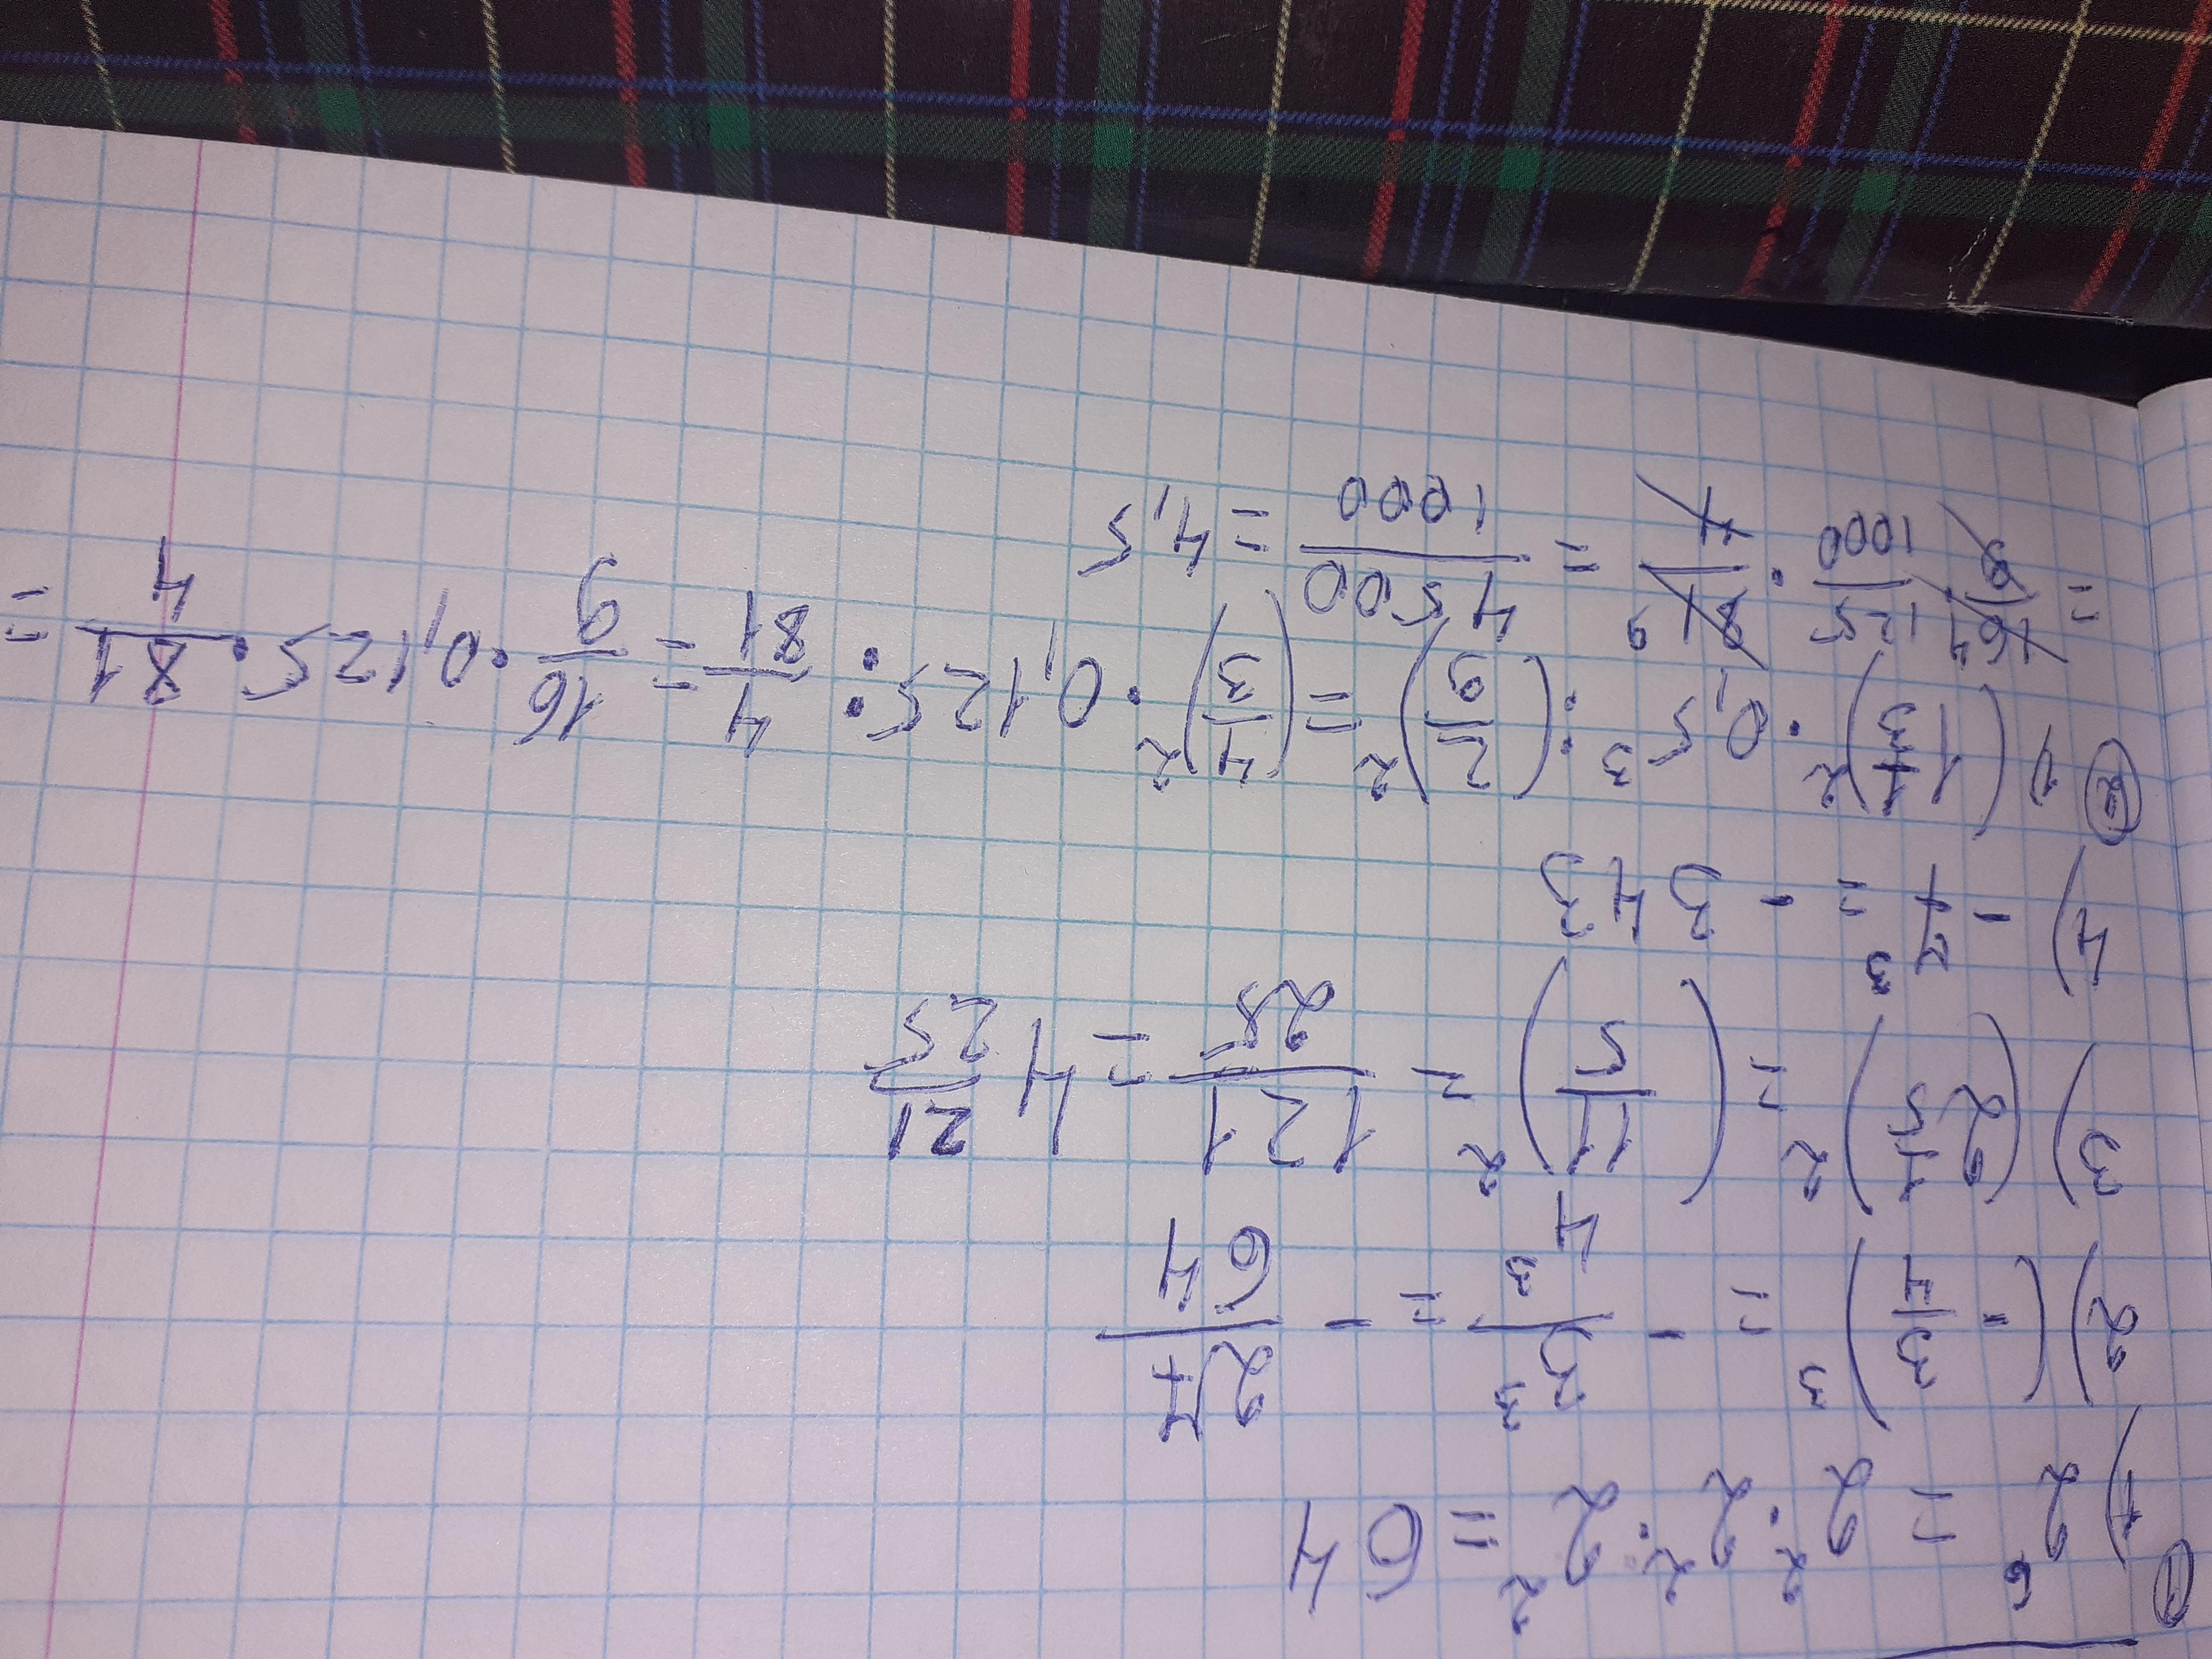 ①
1) 2⁶ = 2² · 2² · 2² = 64
2) (-3/4)³ = - 3³/4³ = - 27/64
3) (2 1/5)² = (11/5)² = 121/25 = 4 21/25
4) - 7³ = - 343
② 1) (1 1/3)² · 0,5³ : (2/9)² = (4/3)² · 0,125 : 4/81 = 16/9 · 0,125 · 81/4 =
= 16 4/9 · 125/1000 · 81 9/4 = 4500/1000 = 4,5